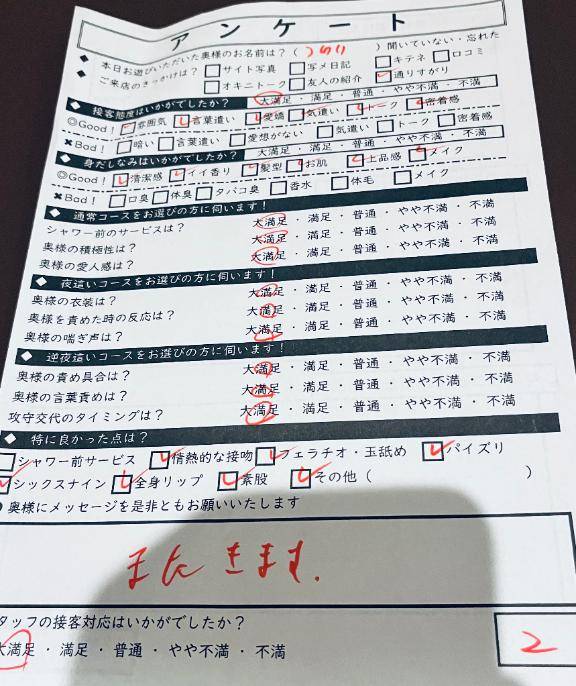 アンケート
本日お遊びいただいた奥様のお名前は？（ ）聞いていない・忘れた
ご来店のきっかけは？ サイト写真 写メ日記 キテネ 口コミ
オキニトーク 友人の紹介 通りすがり
接客態度はいかがでしたか？ 大満足・満足・普通・やや不満・不満
◎Good！ 雰囲気 言葉遣い 愛嬌 気遣い トーク 密着感
✖Bad！ 暗い 言葉遣い 愛想がない 気遣い トーク 密着感
身だしなみはいかがでしたか？ 大満足・満足・普通・やや不満・不満
◎Good！ 清潔感 イイ香り 髪型 お肌 上品感 メイク
✖Bad！ 口臭 体臭 タバコ臭 香水 体毛 メイク
通常コースをお選びの方に伺います！
シャワー前のサービスは？ 大満足・満足・普通・やや不満・不満
奥様の積極性は？ 大満足・満足・普通・やや不満・不満
奥様の愛人感は？ 大満足・満足・普通・やや不満・不満
夜這いコースをお選びの方に伺います！
奥様の衣装は？ 大満足・満足・普通・やや不満・不満
奥様を責めた時の反応は？ 大満足・満足・普通・やや不満・不満
奥様の喘ぎ声は？ 大満足・満足・普通・やや不満・不満
逆夜這いコースをお選びの方に伺います！
奥様の責め具合は？ 大満足・満足・普通・やや不満・不満
奥様の言葉責めは？ 大満足・満足・普通・やや不満・不満
攻守交代のタイミングは？ 大満足・満足・普通・やや不満・不満
特に良かった点は？
シャワー前サービス 情熱的な接吻 フェラチオ・玉舐め パイズリ
シックスナイン 全身リップ 素股 その他（ ）
奥様にメッセージを是非ともお願いいたします
またきます.
タッフの接客対応はいかがでしたか？
大満足・満足・普通・やや不満・不満
2